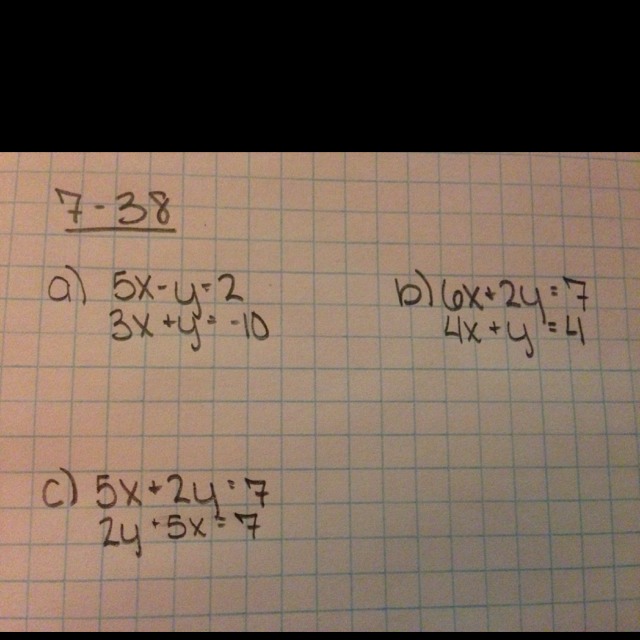 7-38
a) 5x-y=2
3x+y=-10
b) 6x+2y=7
4x+y=4
c) 5x+2y=7
2y+5x=7